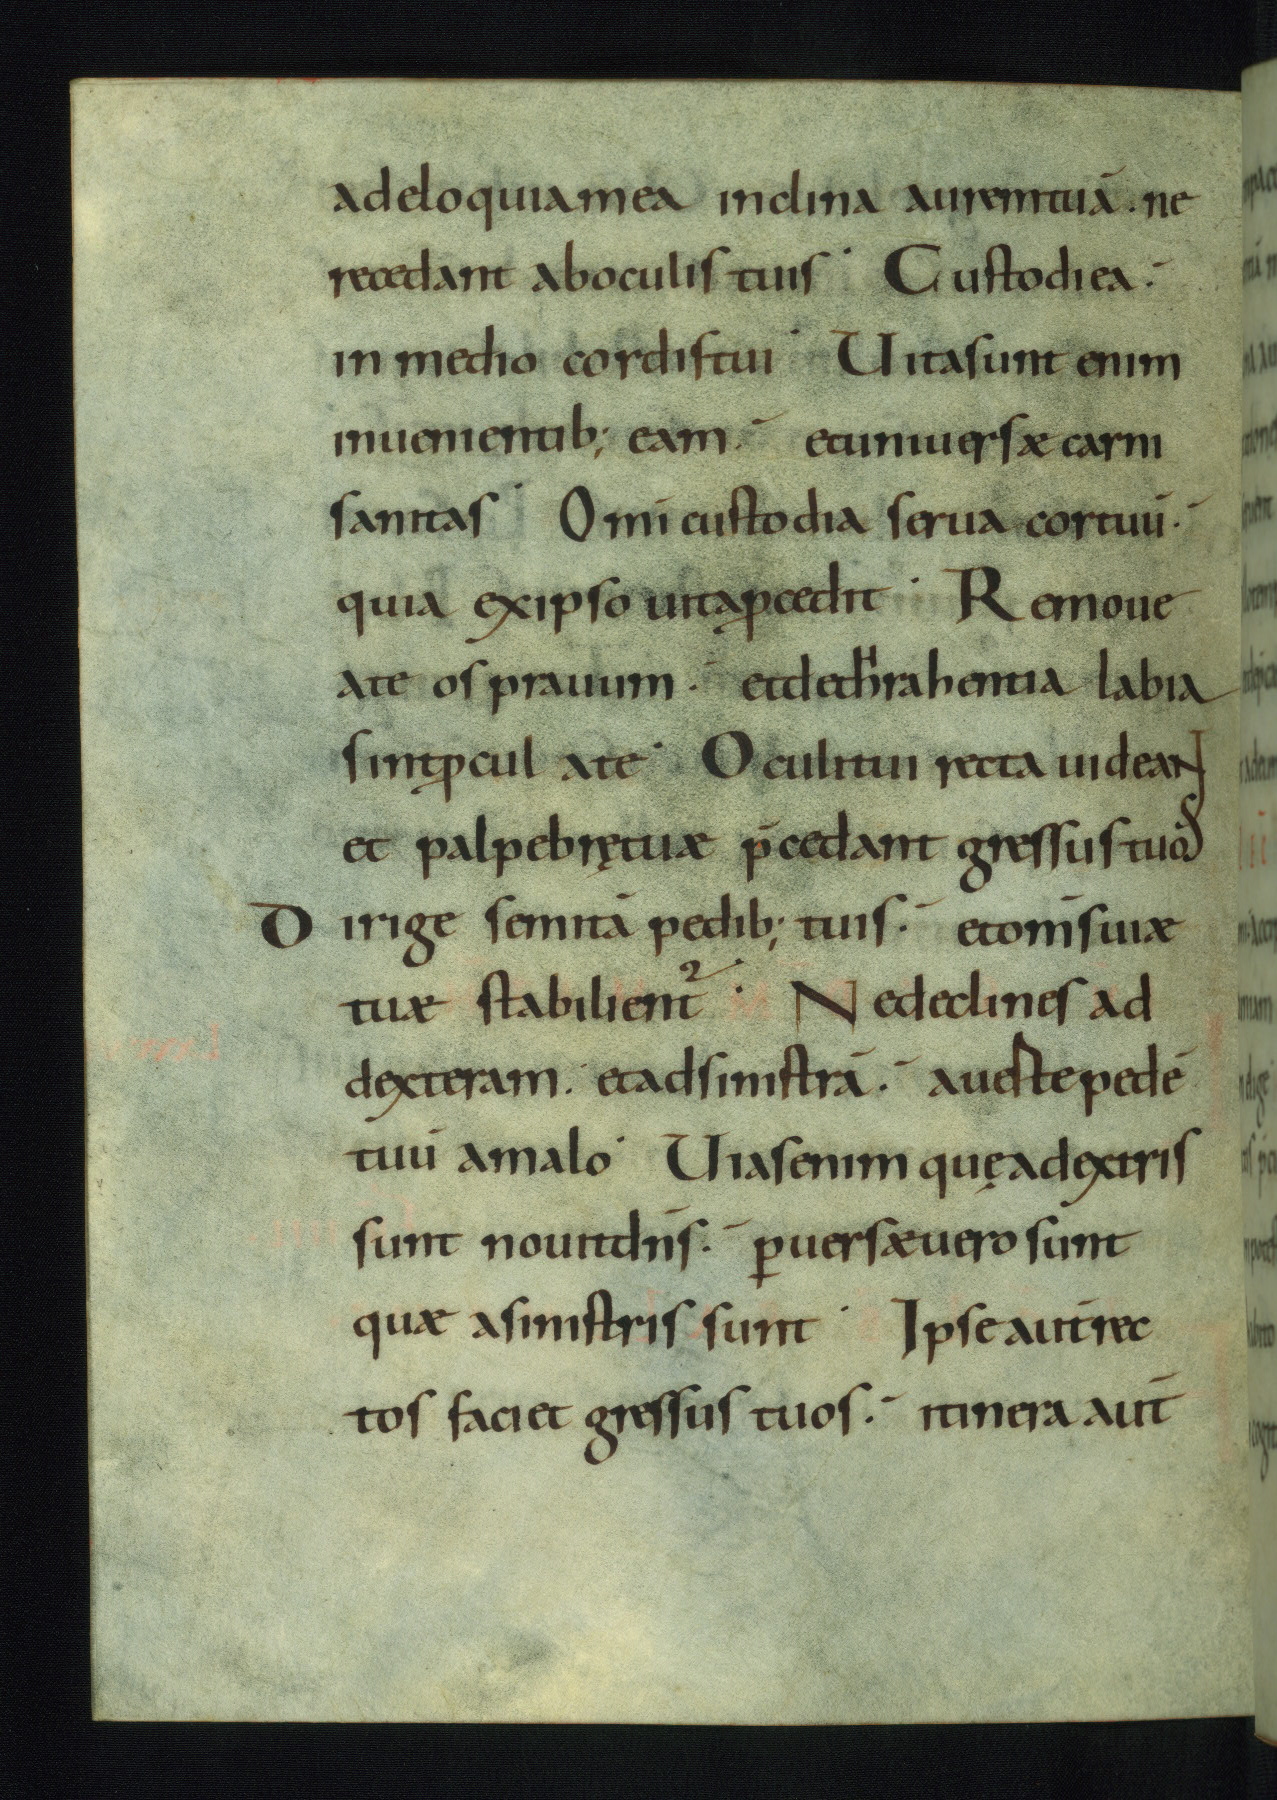 ad eloquia mea inclina aurem tuā. ne
recedant ab oculis tuis. Custodi ea.
in medio cordis tui. Uita sunt enim
inuenientib; eam. et uniuersæ carni
sanitas. Omi custodia serua cor tuū.
quia ex ipso uita ꝓcedit. Remoue
a te os prauum. et dethrahentia labia
sint ꝓcul a te. Oculi tui recta uideaNT
et palpebrę tuæ p̄cedant gressus tuos
Dirige semitā pedib; tuis. et om̄s uiæ
tuæ stabilient². Ne declines ad
dexteram. et ad sinistrā. auerte pedē
tuū a malo. Uias enim quę a dextris
sunt nouit dn̄s. ꝑuersæ uero sunt
quæ a sinistris sunt. Ipse aut̄ rec
tos faciet gressus tuos. itinera aut̄